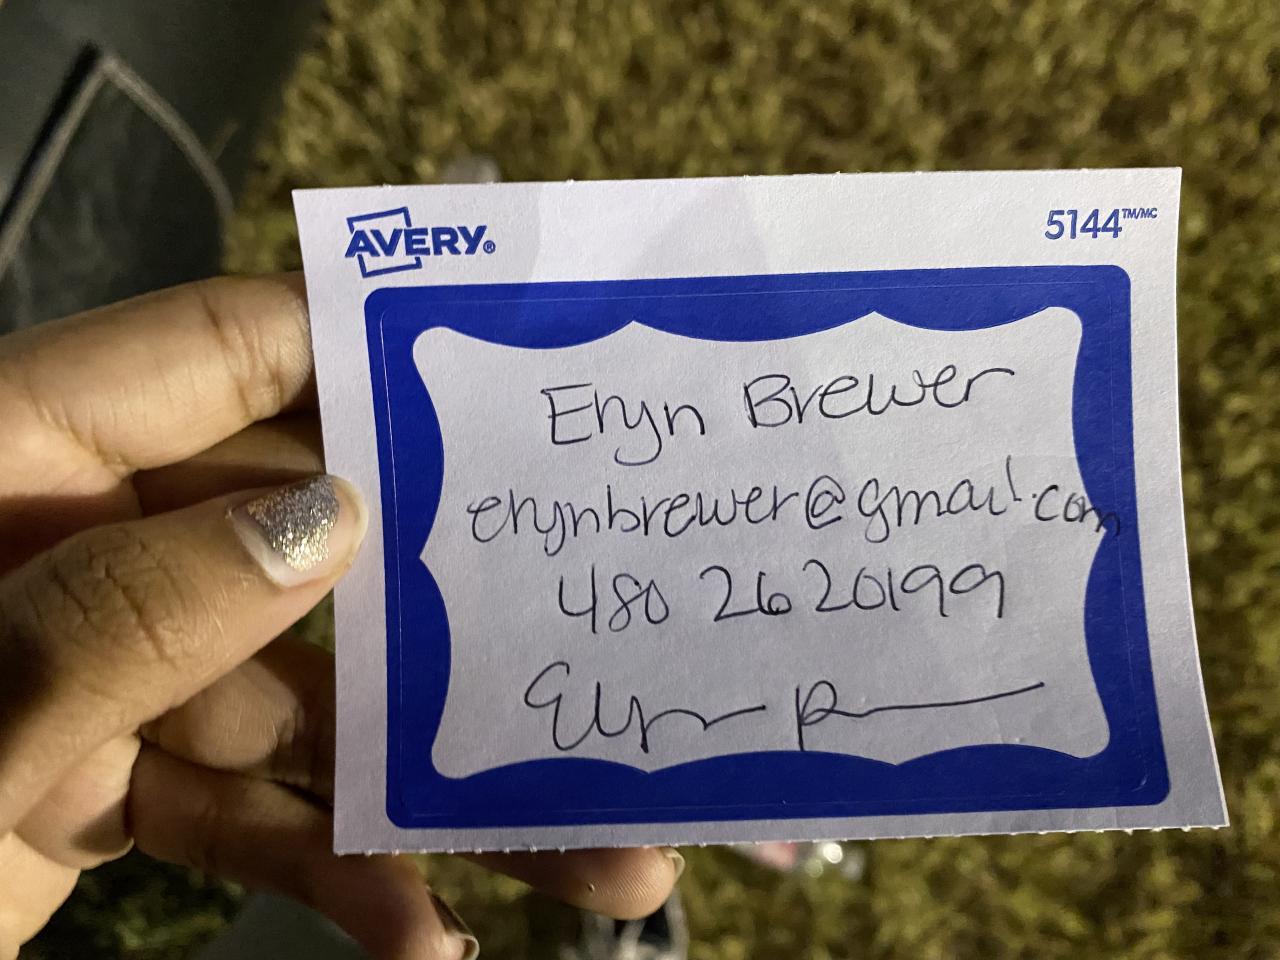 AVERY®
5144™/MC
Eryn Brewer
erynbrewer@gmail.com
480 2620199